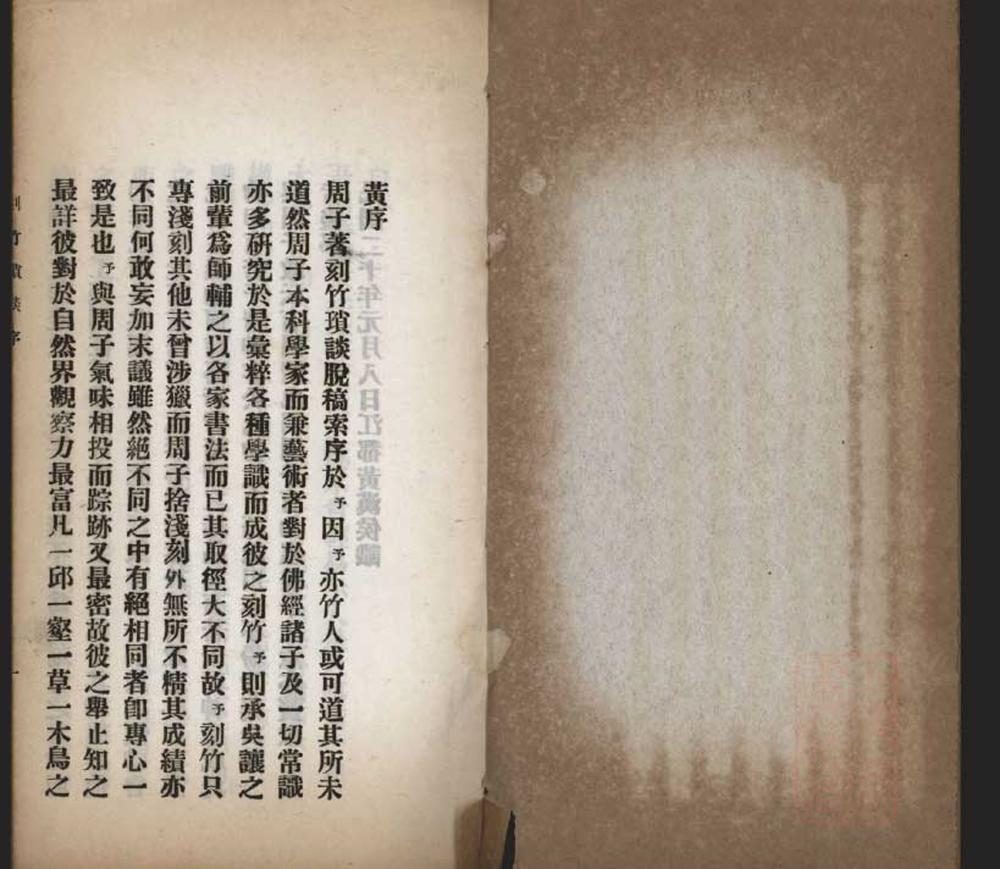 黃序
周子著刻竹瑣談脫稿索序於予因予亦竹人或可道其所未
道然周子本科學家而兼藝術者對於佛經諸子及一切常識
亦多研究於是彙粹各種學識而成彼之刻竹予則承吳讓之
前輩爲師輔之以各家書法而已其取徑大不同故予刻竹只
專淺刻其他未曾涉獵而周子捨淺刻外無所不精其成績亦
不同何敢妄加末議雖然絕不同之中有絕相同者卽專心一
致是也予與周子氣味相投而踪跡又最密故彼之舉止知之
最詳彼對於自然界觀察力最富凡一邱一壑一草一木鳥之
刻竹瑣談序
一